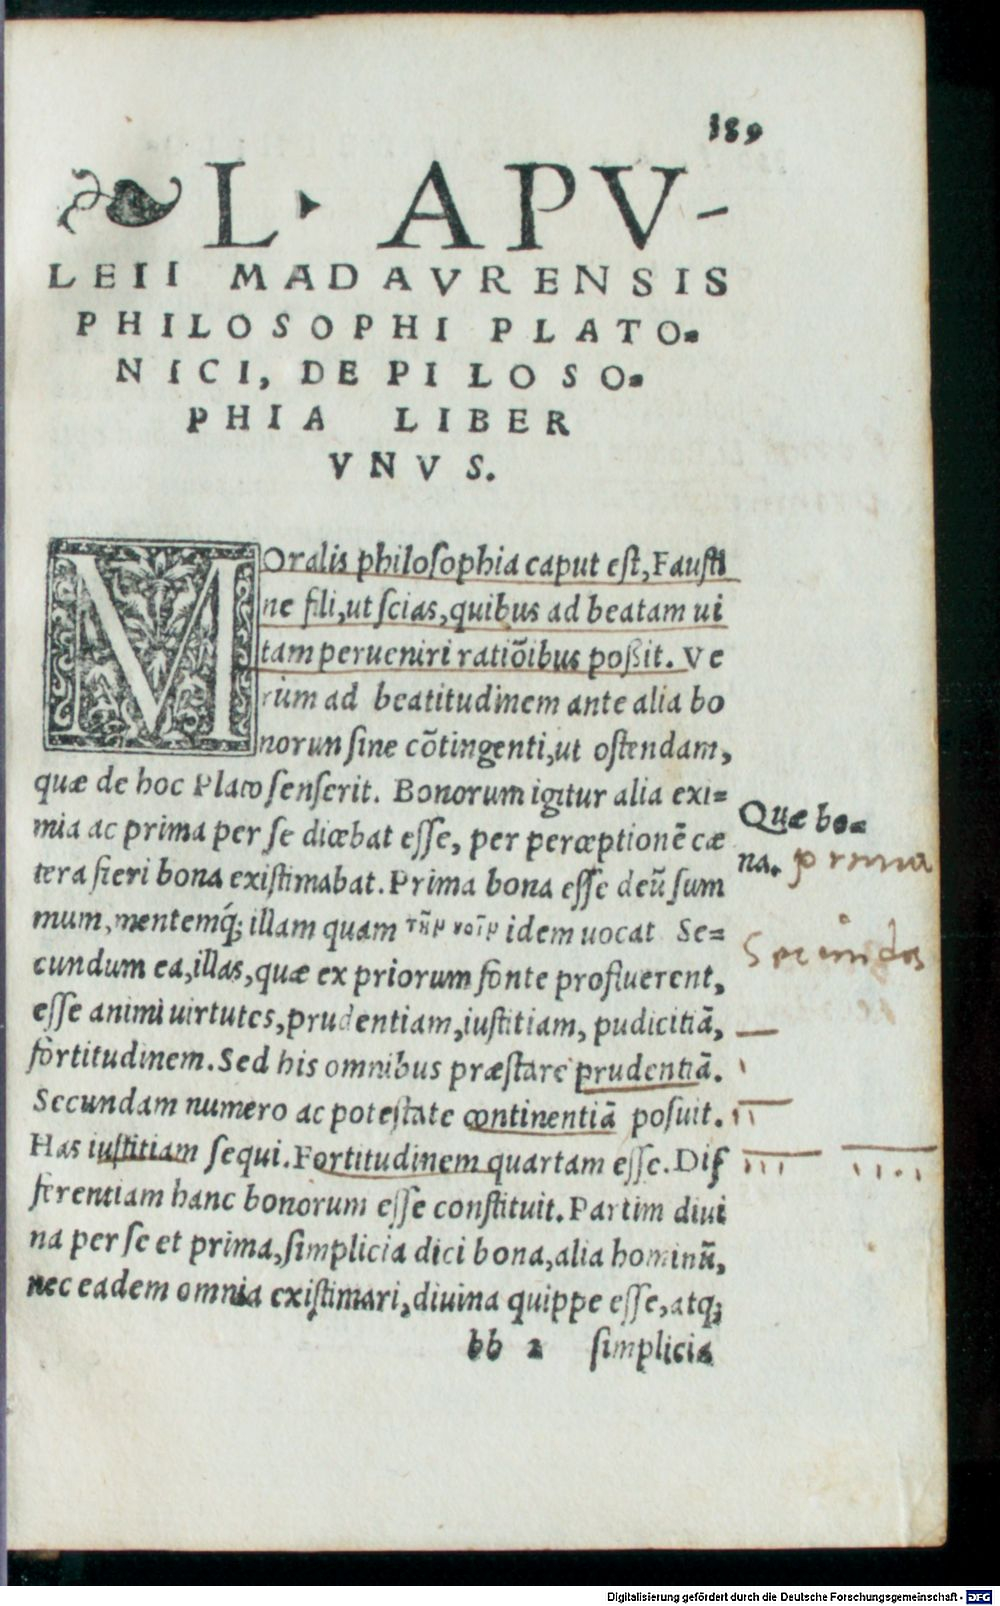 189
L. APV-
LEII MADAVRENSIS
PHILOSOPHI PLATO-
NICI, DE PILOSO-
PHIA LIBER
VNVS.
MOralis philosophia caput est, Fausti
ne fili, ut scias, quibus ad beatam ui
tam perueniri ratiõibus poßit. Ve
rum ad beatitudinem ante alia bo
norun sine cõtingenti, ut ostendam,
quæ de hoc Plato senserit. Bonorum igitur alia exi=
mia ac prima per se dicebat esse, per perceptionẽ cæ
tera fieri bona existimabat. Prima bona esse deũ sum
mum, mentemq́; illam quam τὴν νοῦν idem uocat Se=
cundum ea, illas, quæ ex priorum fonte profluerent,
esse animi uirtutes, prudentiam, iustitiam, pudicitiã,
fortitudinem. Sed his omnibus præstare prudentiã.
Secundam numero ac potestate continentiã posuit.
Has iustitiam sequi. Fortitudinem quartam esse. Dif
ferentiam hanc bonorum esse constituit. Partim diui
na per se et prima, simplicia dici bona, alia hominũ,
nec eadem omnia existimari, diuina quippe esse, atq;
bb 2 simplicia
Quæ bo=
na. prima
Secunda